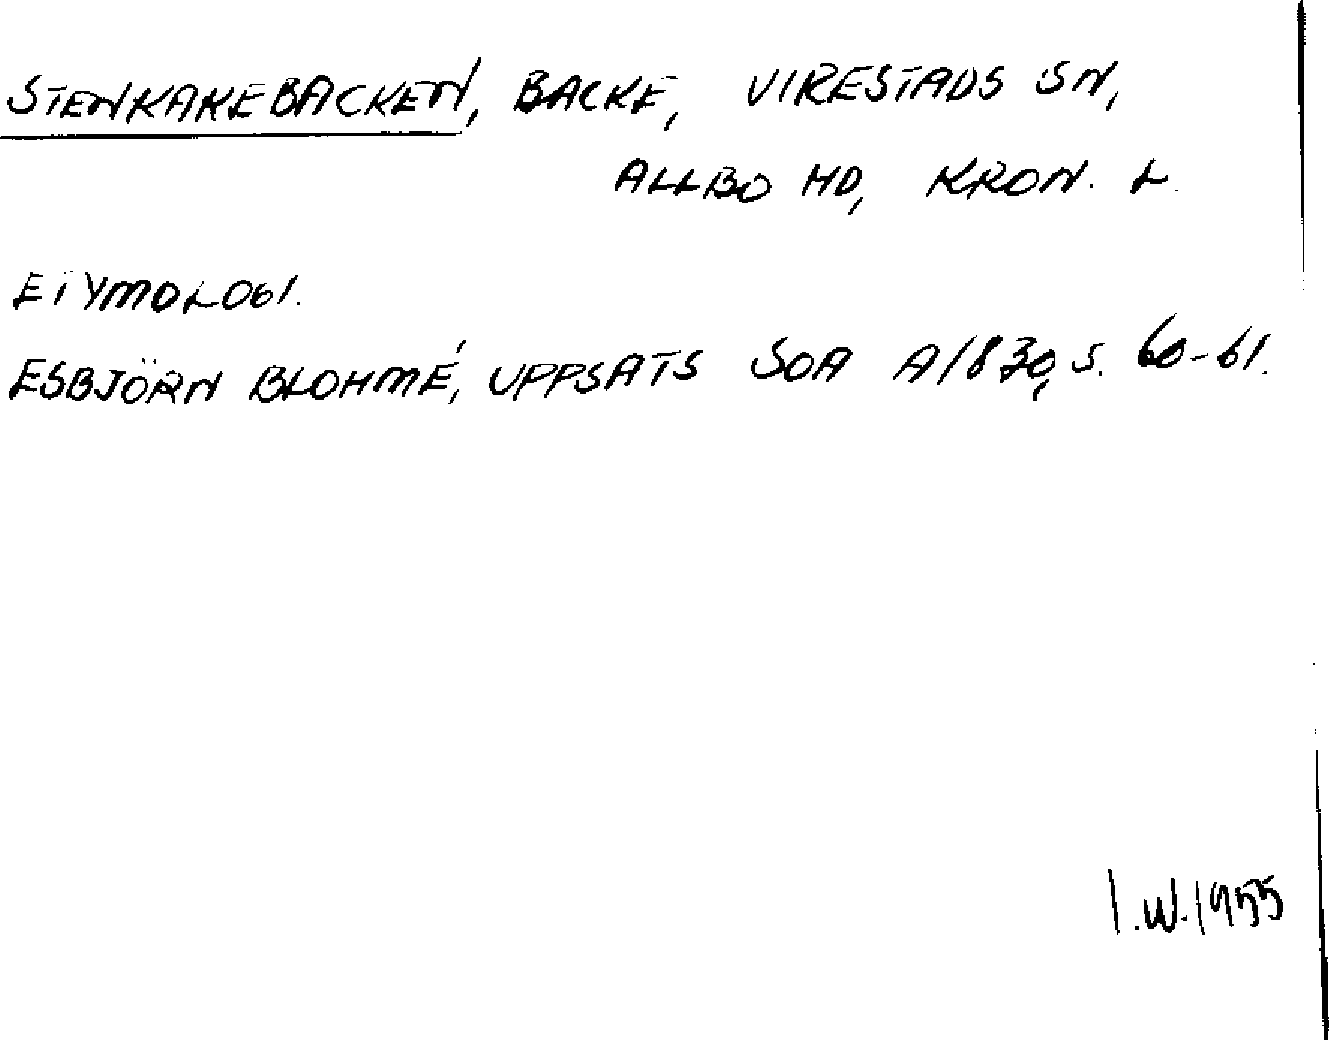 STENKAKEBACKEN, BACKE, VIRESTADS SN,
ALLBO HD, KRON. L.
ETYMOLOGI.
ESBJÖRN BLOHMÉ, UPPSATS SOA A/830, S. 60-61.
I.W. 1955